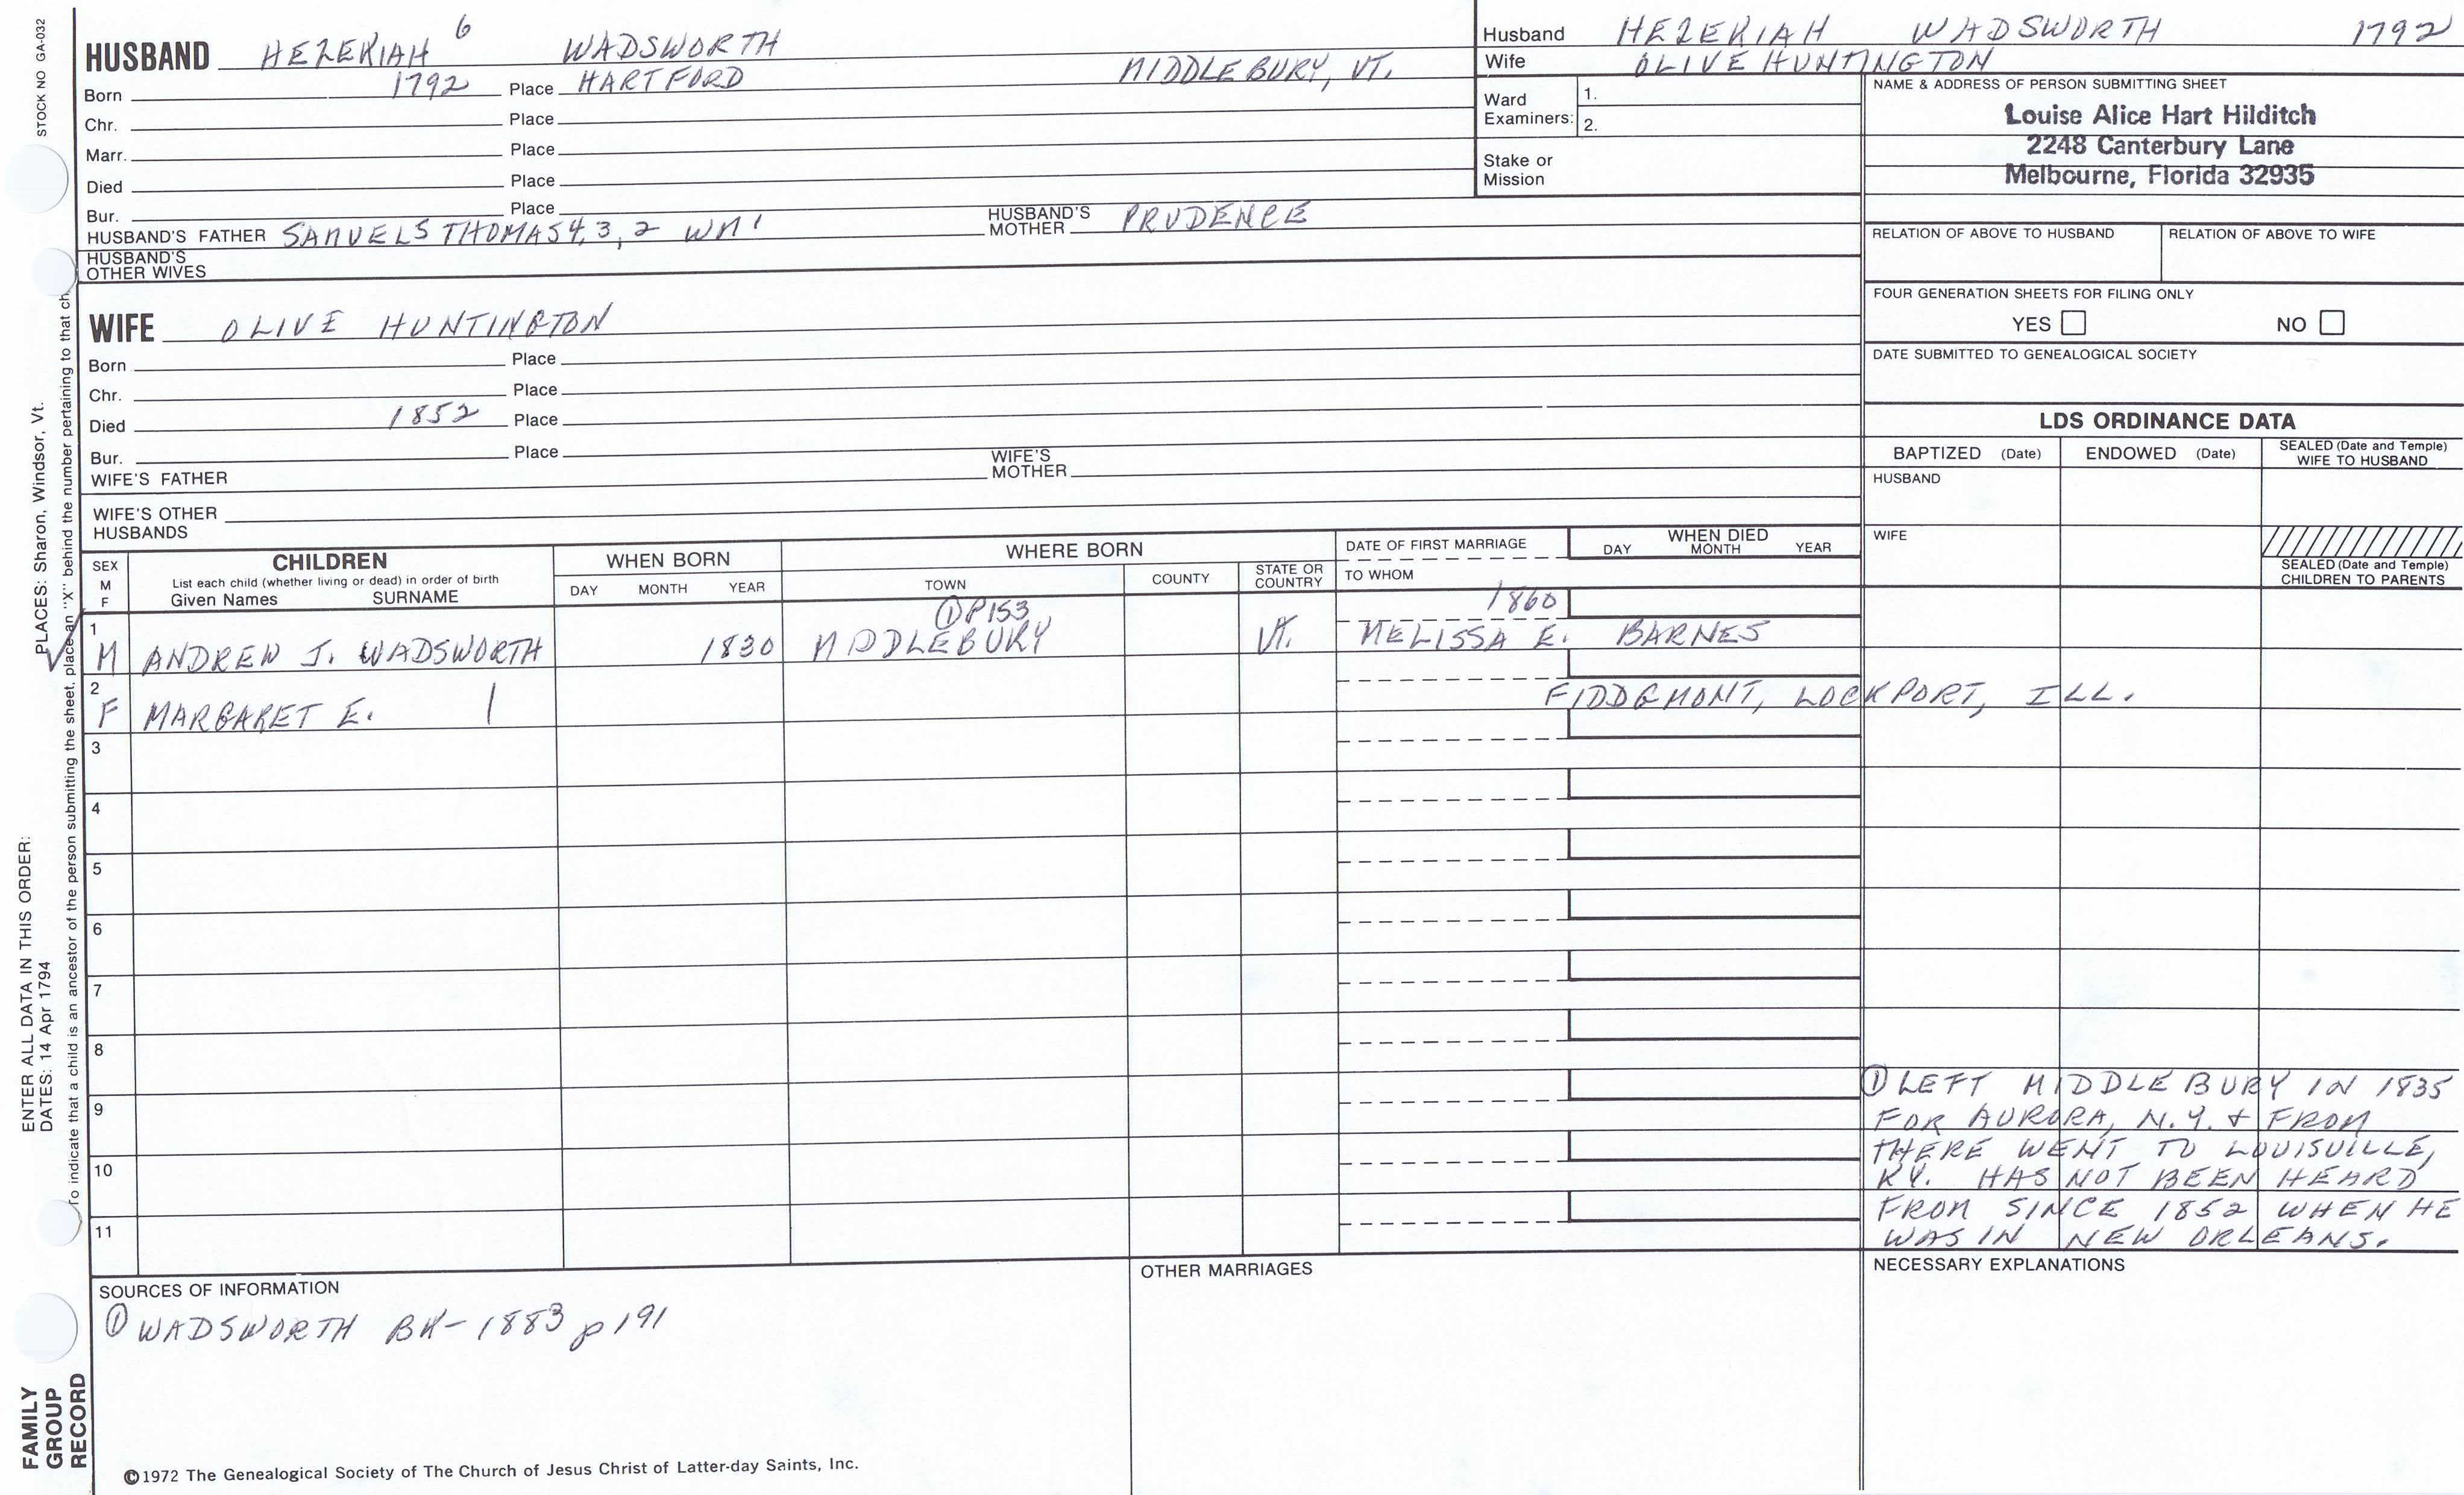 STOCK NO GA-032
HUSBAND HEZEKIAH 6 WADSWORTH
Born 1792 Place HARTFORD MIDDLEBURY, VT.
Chr. Place
Marr. Place
Died Place
Bur. Place
HUSBAND'S FATHER SAMUEL5 THOMAS4,3,2 WM1 HUSBAND'S MOTHER PRUDENCE
HUSBAND'S OTHER WIVES
Husband HEZEKIAH WADSWORTH 1792
Wife OLIVE HUNTINGTON
Ward Examiners: 1.
2.
Stake or Mission
NAME & ADDRESS OF PERSON SUBMITTING SHEET
Louise Alice Hart Hilditch
2248 Canterbury Lane
Melbourne, Florida 32935
RELATION OF ABOVE TO HUSBAND RELATION OF ABOVE TO WIFE
FOUR GENERATION SHEETS FOR FILING ONLY
YES NO
DATE SUBMITTED TO GENEALOGICAL SOCIETY
WIFE OLIVE HUNTINGTON
Born Place
Chr. Place
Died 1852 Place
Bur. Place
WIFE'S FATHER WIFE'S MOTHER
WIFE'S OTHER HUSBANDS
LDS ORDINANCE DATA
BAPTIZED (Date) ENDOWED (Date) SEALED (Date and Temple) WIFE TO HUSBAND
HUSBAND
WIFE
SEALED (Date and Temple) CHILDREN TO PARENTS
SEX M F
CHILDREN
List each child (whether living or dead) in order of birth
Given Names SURNAME
WHEN BORN
DAY MONTH YEAR
WHERE BORN
TOWN COUNTY STATE OR COUNTRY
DATE OF FIRST MARRIAGE
TO WHOM
WHEN DIED
DAY MONTH YEAR
① P153 1860
1 M ANDREW J. WADSWORTH 1830 MIDDLEBURY VT. MELISSA E. BARNES
2 F MARGARET E. | LOCKPORT, ILL.
3
4
5
6
7
8
9
10
11
① LEFT MIDDLEBURY IN 1835
FOR AURORA, N.Y. & FROM
THERE WENT TO LOUISVILLE,
KY. HAS NOT BEEN HEARD
FROM SINCE 1852 WHEN HE
WAS IN NEW ORLEANS.
SOURCES OF INFORMATION
① WADSWORTH BK-1883 p191
OTHER MARRIAGES
NECESSARY EXPLANATIONS
©1972 The Genealogical Society of The Church of Jesus Christ of Latter-day Saints, Inc.
ENTER ALL DATA IN THIS ORDER:
DATES: 14 Apr 1794
PLACES: Sharon, Windsor, Vt.
To indicate that a child is an ancestor of the person submitting the sheet, place an "X" behind the number pertaining to that ch
FAMILY
GROUP
RECORD